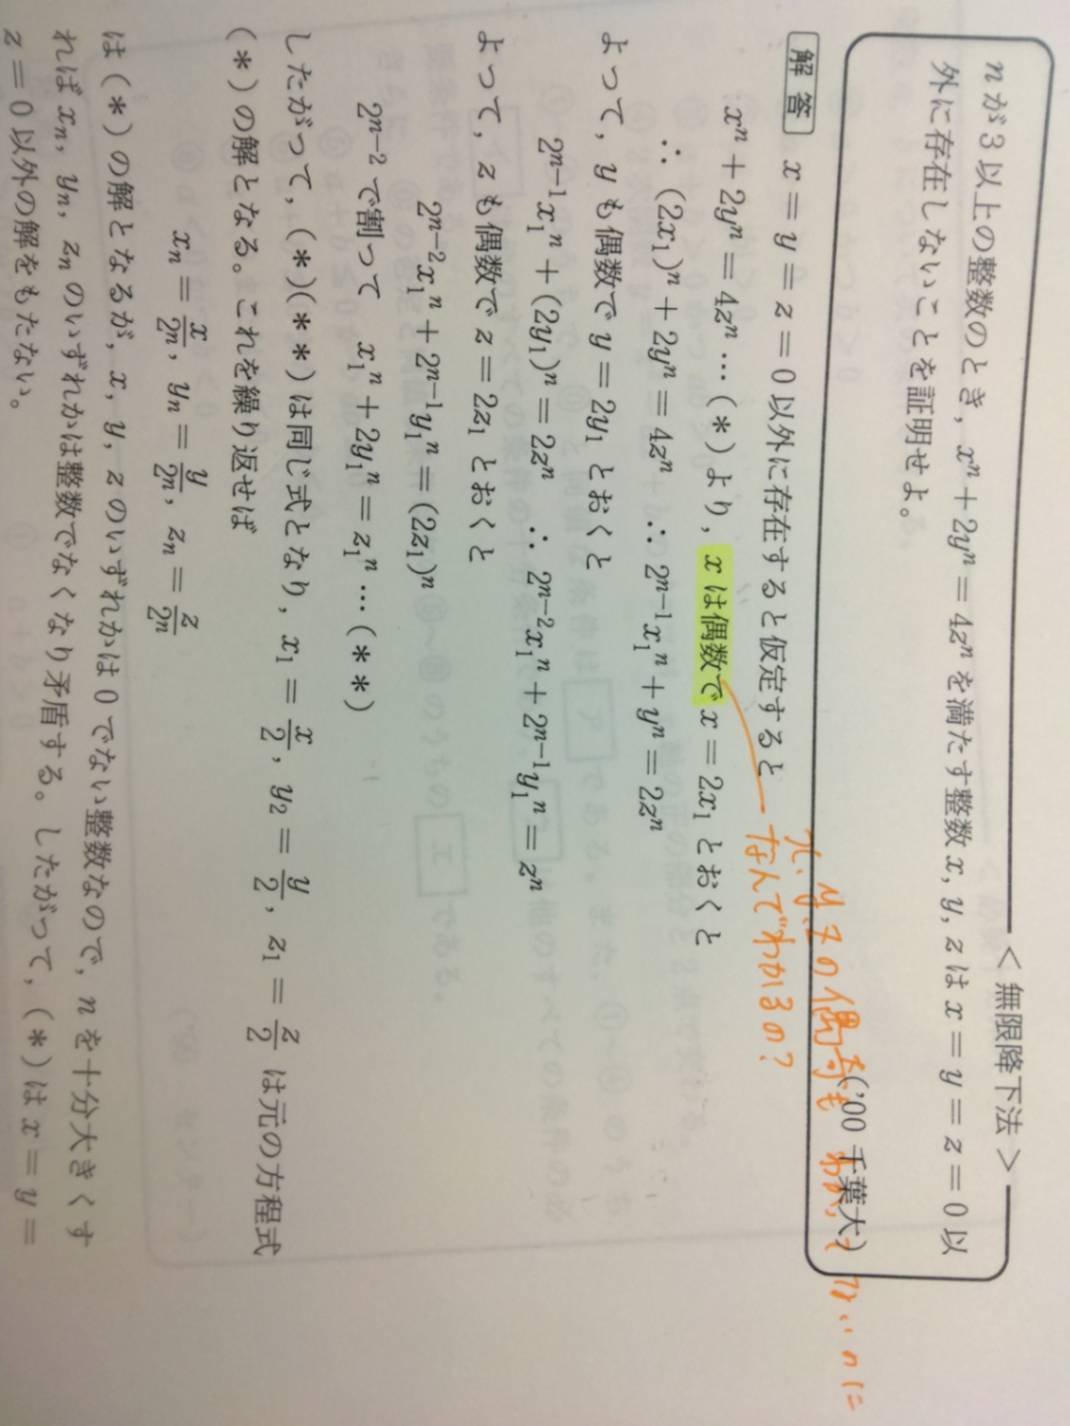 ＜無限降下法＞
nが3以上の整数のとき，xⁿ＋2yⁿ＝4zⁿを満たす整数x, y, zはx＝y＝z＝0以
外に存在しないことを証明せよ。
('00 千葉大)
解答 x＝y＝z＝0以外に存在すると仮定すると
xⁿ＋2yⁿ＝4zⁿ…(*)より，xは偶数でx＝2x₁とおくと
∴ (2x₁)ⁿ＋2yⁿ＝4zⁿ ∴ 2ⁿ⁻¹x₁ⁿ＋yⁿ＝2zⁿ
よって，yも偶数でy＝2y₁とおくと
2ⁿ⁻¹x₁ⁿ＋(2y₁)ⁿ＝2zⁿ ∴ 2ⁿ⁻²x₁ⁿ＋2ⁿ⁻¹y₁ⁿ＝zⁿ
よって，zも偶数でz＝2z₁とおくと
2ⁿ⁻²x₁ⁿ＋2ⁿ⁻¹y₁ⁿ＝(2z₁)ⁿ
2ⁿ⁻²で割って x₁ⁿ＋2y₁ⁿ＝z₁ⁿ…(**)
したがって，(*)(**)は同じ式となり，x₁＝x/2, y₂＝y/2, z₁＝z/2 は元の方程式
(*)の解となる。これを繰り返せば
xₙ＝x/2ⁿ, yₙ＝y/2ⁿ, zₙ＝z/2ⁿ
は(*)の解となるが，x, y, zのいずれかは0でない整数なので，nを十分大きくす
ればxₙ, yₙ, zₙのいずれかは整数でなくなり矛盾する。したがって，(*)はx＝y＝
z＝0以外の解をもたない。
x、y、zの偶奇も わかってないのに
なんでわかるの？